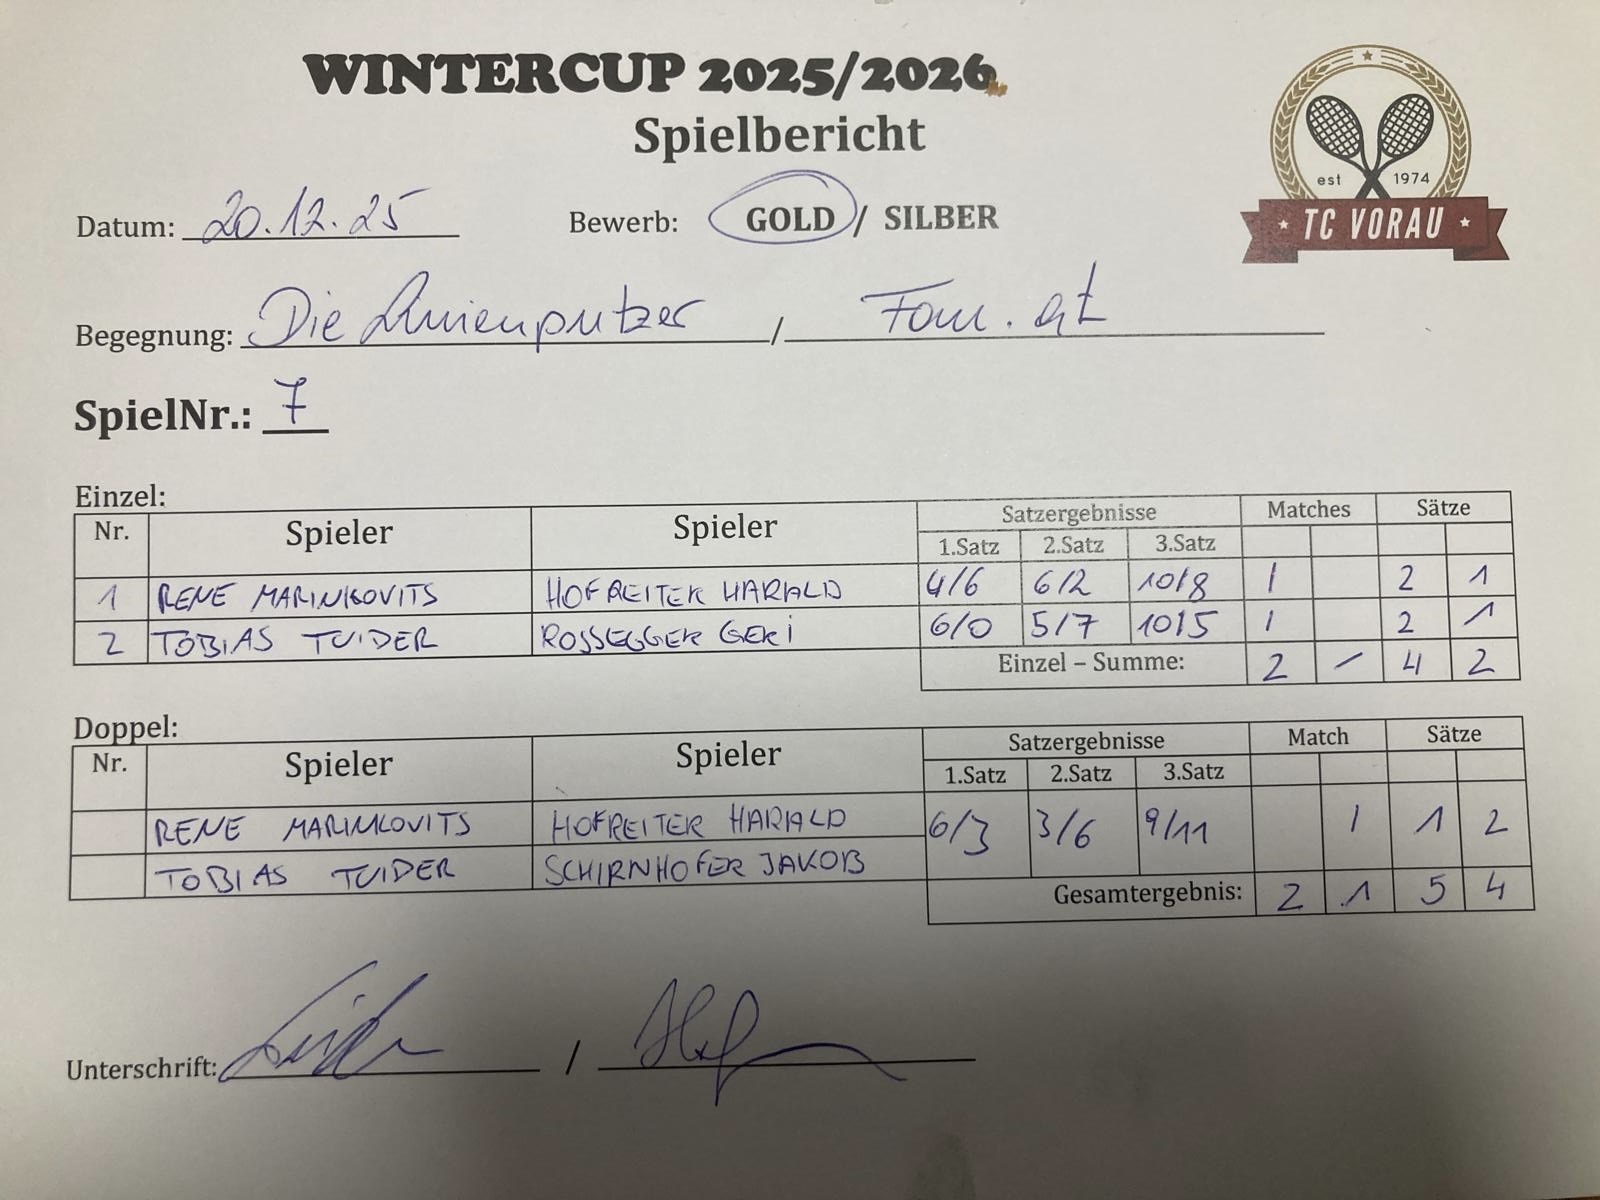 WINTERCUP 2025/2026
Spielbericht
est 1974
TC VORAU
Datum: 20.12.25 Bewerb: GOLD / SILBER
Begegnung: Die Linienputzer / Fom.at
SpielNr.: 7
Einzel:
Nr. Spieler Spieler Satzergebnisse Matches Sätze
1.Satz 2.Satz 3.Satz
1 RENE MARINKOVITS HOFREITER HARALD 4/6 6/2 10/8 1 2 1
2 TOBIAS TUIDER ROSSEGGER GERI 6/0 5/7 10/5 1 2 1
Einzel – Summe: 2 – 4 2
Doppel:
Nr. Spieler Spieler Satzergebnisse Match Sätze
1.Satz 2.Satz 3.Satz
RENE MARINKOVITS HOFREITER HARALD 6/3 3/6 9/11 1 1 2
TOBIAS TUIDER SCHIRNHOFER JAKOB
Gesamtergebnis: 2 1 5 4
Unterschrift: /